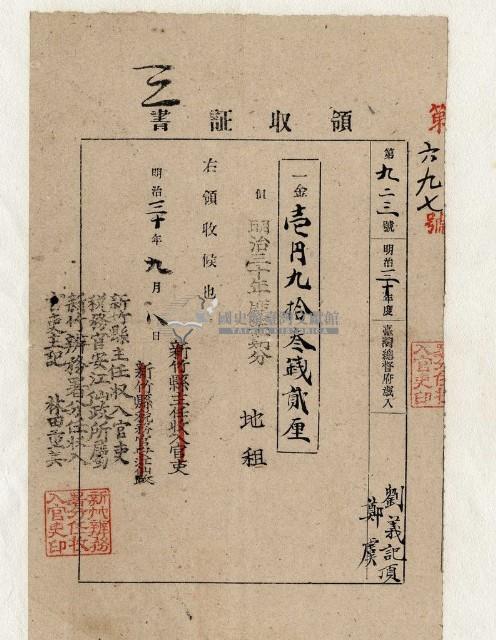 三
領収証書
第六九七號
第九二三號 明治三十年度 臺灣總督府歳入
劉義記頂
鄭虞
一金壱円九拾叁錢貳厘
地租
但 明治三十年度 分
右領收候也
明治三十年九月八日
新竹縣主任收入官吏
新竹縣主任收入官吏
稅務官安江 政所屬
新竹辨務署分任收入
官吏主記 林田
新竹辨務
署分任收
入官吏印
署分任收
入官吏印
國史館臺灣文獻館
TAIWAN HISTORICA